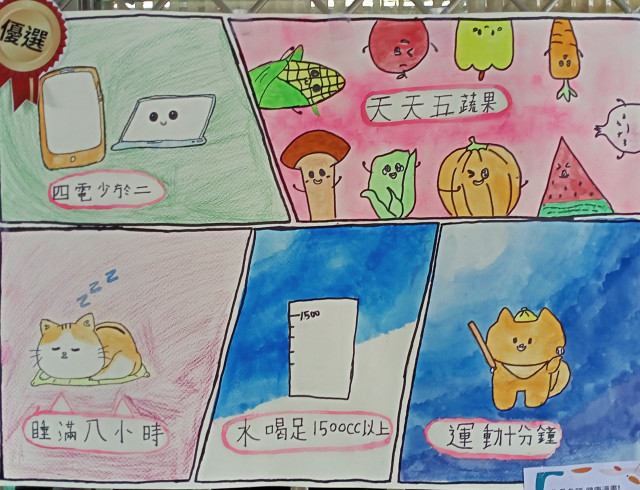 優選
四電少於二
天天五蔬果
睡滿八小時
1500
水喝足1500cc以上
運動十分鐘